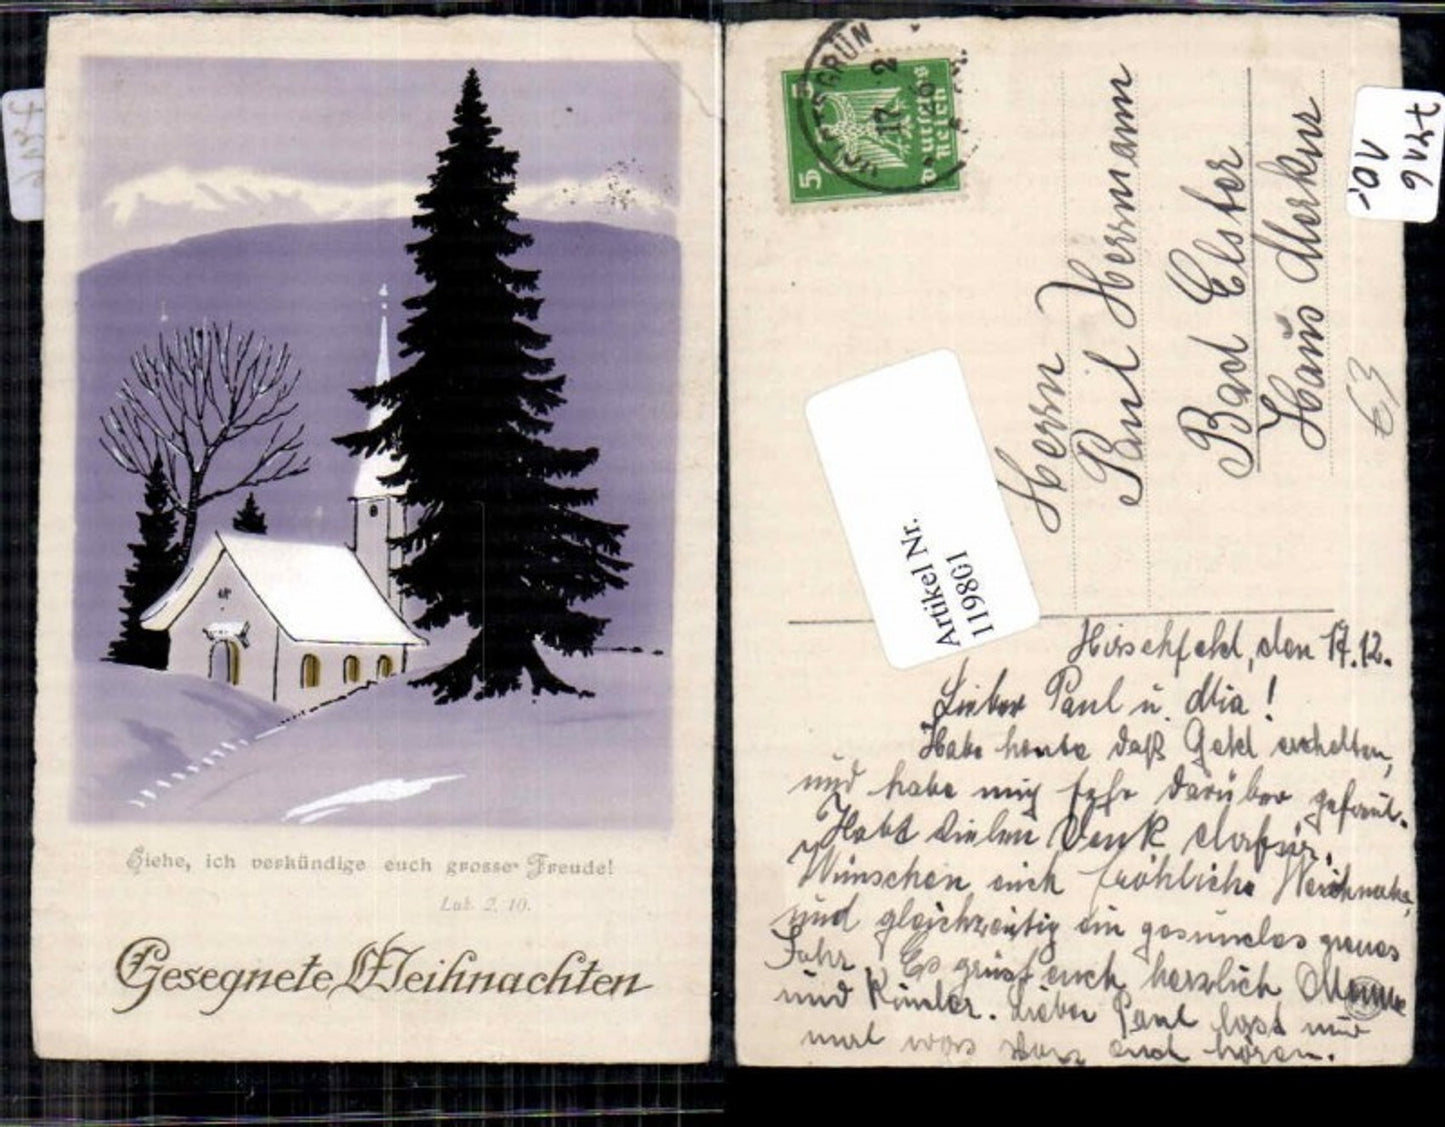 Siehe, ich verkündige euch grosse Freude!
Luk. 2, 10.
Gesegnete Weihnachten
5
Deutsches
Reich
17 12 26
Herrn
Paul Herrmann
Bad Elster
Haus Merkur
Artikel Nr.
119801
10,-
E3
Hirschfeld, den 17.12.
Lieber Paul u. Mia!
Habe heute daß Geld erhalten,
und habe mich sehr darüber gefreut.
Habt vielen Dank dafür.
Wünschen euch fröhliche Weichnacht,
und gleichzeitig ein gesundes neues
Jahr. Es grüst euch herzlich
und Kinder. Lieber Paul last mir
mal was von euch hören.